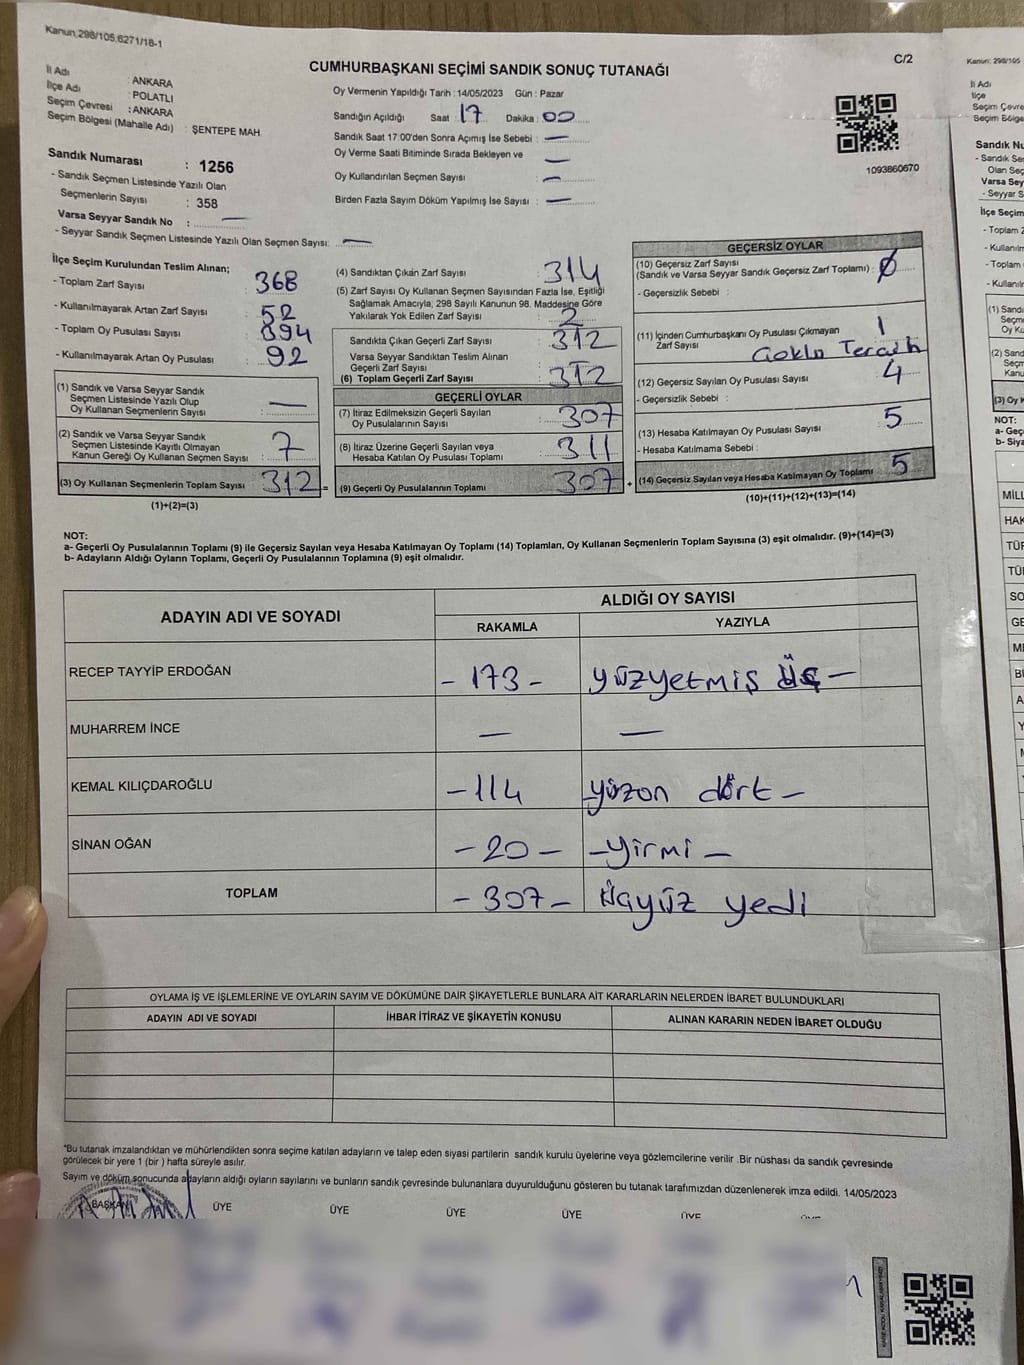 Kanun;298/105;6271/18-1
C/2
CUMHURBAŞKANI SEÇİMİ SANDIK SONUÇ TUTANAĞI
İl Adı : ANKARA
İlçe Adı : POLATLI
Seçim Çevresi : ANKARA
Seçim Bölgesi (Mahalle Adı) : ŞENTEPE MAH.
Sandık Numarası : 1256
- Sandık Seçmen Listesinde Yazılı Olan
Seçmenlerin Sayısı : 358
Varsa Seyyar Sandık No : —
- Seyyar Sandık Seçmen Listesinde Yazılı Olan Seçmen Sayısı: —
Oy Vermenin Yapıldığı Tarih : 14/05/2023 Gün : Pazar
Sandığın Açıldığı Saat 17 Dakika : 00
Sandık Saat 17:00'den Sonra Açımış İse Sebebi : —
Oy Verme Saati Bitiminde Sırada Bekleyen ve —
Oy Kullandırılan Seçmen Sayısı : —
Birden Fazla Sayım Döküm Yapılmış İse Sayısı : —
1093860670
İlçe Seçim Kurulundan Teslim Alınan;
- Toplam Zarf Sayısı : 368
- Kullanılmayarak Artan Zarf Sayısı : 52
- Toplam Oy Pusulası Sayısı : 394
- Kullanılmayarak Artan Oy Pusulası : 92
(1) Sandık ve Varsa Seyyar Sandık
Seçmen Listesinde Yazılı Olup
Oy Kullanan Seçmenlerin Sayısı : —
(2) Sandık ve Varsa Seyyar Sandık
Seçmen Listesinde Kayıtlı Olmayan
Kanun Gereği Oy Kullanan Seçmen Sayısı : 7
(3) Oy Kullanan Seçmenlerin Toplam Sayısı : 312 =
(1)+(2)=(3)
(4) Sandıktan Çıkan Zarf Sayısı : 314
(5) Zarf Sayısı Oy Kullanan Seçmen Sayısından Fazla İse, Eşitliği
Sağlamak Amacıyla; 298 Sayılı Kanunun 98. Maddesine Göre
Yakılarak Yok Edilen Zarf Sayısı : 2
Sandıkta Çıkan Geçerli Zarf Sayısı : 312
Varsa Seyyar Sandıktan Teslim Alınan
Geçerli Zarf Sayısı :
(6) Toplam Geçerli Zarf Sayısı : 312
GEÇERLİ OYLAR
(7) İtiraz Edilmeksizin Geçerli Sayılan
Oy Pusulalarının Sayısı : 307
(8) İtiraz Üzerine Geçerli Sayılan veya
Hesaba Katılan Oy Pusulası Toplamı : 311
(9) Geçerli Oy Pusulalarının Toplamı : 307 +
GEÇERSİZ OYLAR
(10) Geçersiz Zarf Sayısı
(Sandık ve Varsa Seyyar Sandık Geçersiz Zarf Toplamı) : Ø
- Geçersizlik Sebebi :
(11) İçinden Cumhurbaşkanı Oy Pusulası Çıkmayan
Zarf Sayısı : 1
(12) Geçersiz Sayılan Oy Pusulası Sayısı : 4
- Geçersizlik Sebebi :
(13) Hesaba Katılmayan Oy Pusulası Sayısı : 5
- Hesaba Katılmama Sebebi :
(14) Geçersiz Sayılan veya Hesaba Katılmayan Oy Toplamı : 5
(10)+(11)+(12)+(13)=(14)
NOT:
a- Geçerli Oy Pusulalarının Toplamı (9) ile Geçersiz Sayılan veya Hesaba Katılmayan Oy Toplamı (14) Toplamları, Oy Kullanan Seçmenlerin Toplam Sayısına (3) eşit olmalıdır. (9)+(14)=(3)
b- Adayların Aldığı Oyların Toplamı, Geçerli Oy Pusulalarının Toplamına (9) eşit olmalıdır.
ADAYIN ADI VE SOYADI
ALDIĞI OY SAYISI
RAKAMLA YAZIYLA
RECEP TAYYİP ERDOĞAN - 173 - yüzyetmiş üç -
MUHARREM İNCE — —
KEMAL KILIÇDAROĞLU - 114 yüzon dört -
SİNAN OĞAN - 20 - - yirmi -
TOPLAM - 307 - üçyüz yedi
OYLAMA İŞ VE İŞLEMLERİNE VE OYLARIN SAYIM VE DÖKÜMÜNE DAİR ŞİKAYETLERLE BUNLARA AİT KARARLARIN NELERDEN İBARET BULUNDUKLARI
ADAYIN ADI VE SOYADI İHBAR İTİRAZ VE ŞİKAYETİN KONUSU ALINAN KARARIN NEDEN İBARET OLDUĞU
*Bu tutanak imzalandıktan ve mühürlendikten sonra seçime katılan adayların ve talep eden siyasi partilerin sandık kurulu üyelerine veya gözlemcilerine verilir .Bir nüshası da sandık çevresinde
görülecek bir yere 1 (bir ) hafta süreyle asılır.
Sayım ve döküm sonucunda adayların aldığı oyların sayılarını ve bunların sandık çevresinde bulunanlara duyurulduğunu gösteren bu tutanak tarafımızdan düzenlenerek imza edildi. 14/05/2023
BAŞKAN ÜYE ÜYE ÜYE ÜYE ÜYE
Kanun: 298/105
İl Adı
İlçe
Seçim Çevre
Seçim Bölge
Sandık Nu
- Sandık Se
Olan Seç
Varsa Sey
- Seyyar S
İlçe Seçim
- Toplam Z
- Kullanılm
- Toplam
- Kullanılm
NOT:
a- Geç
b- Siya